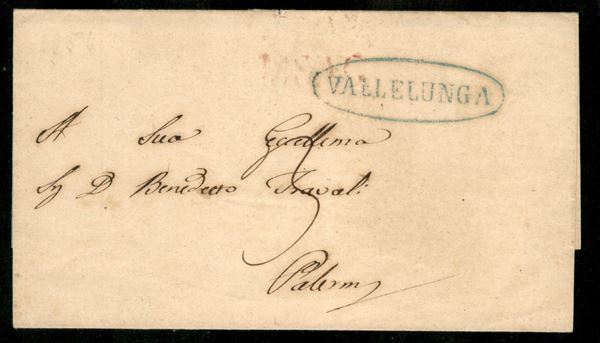 VALLELUNGA
A Sua Eccellenza
Sg D Benedetto Travali
Palermo